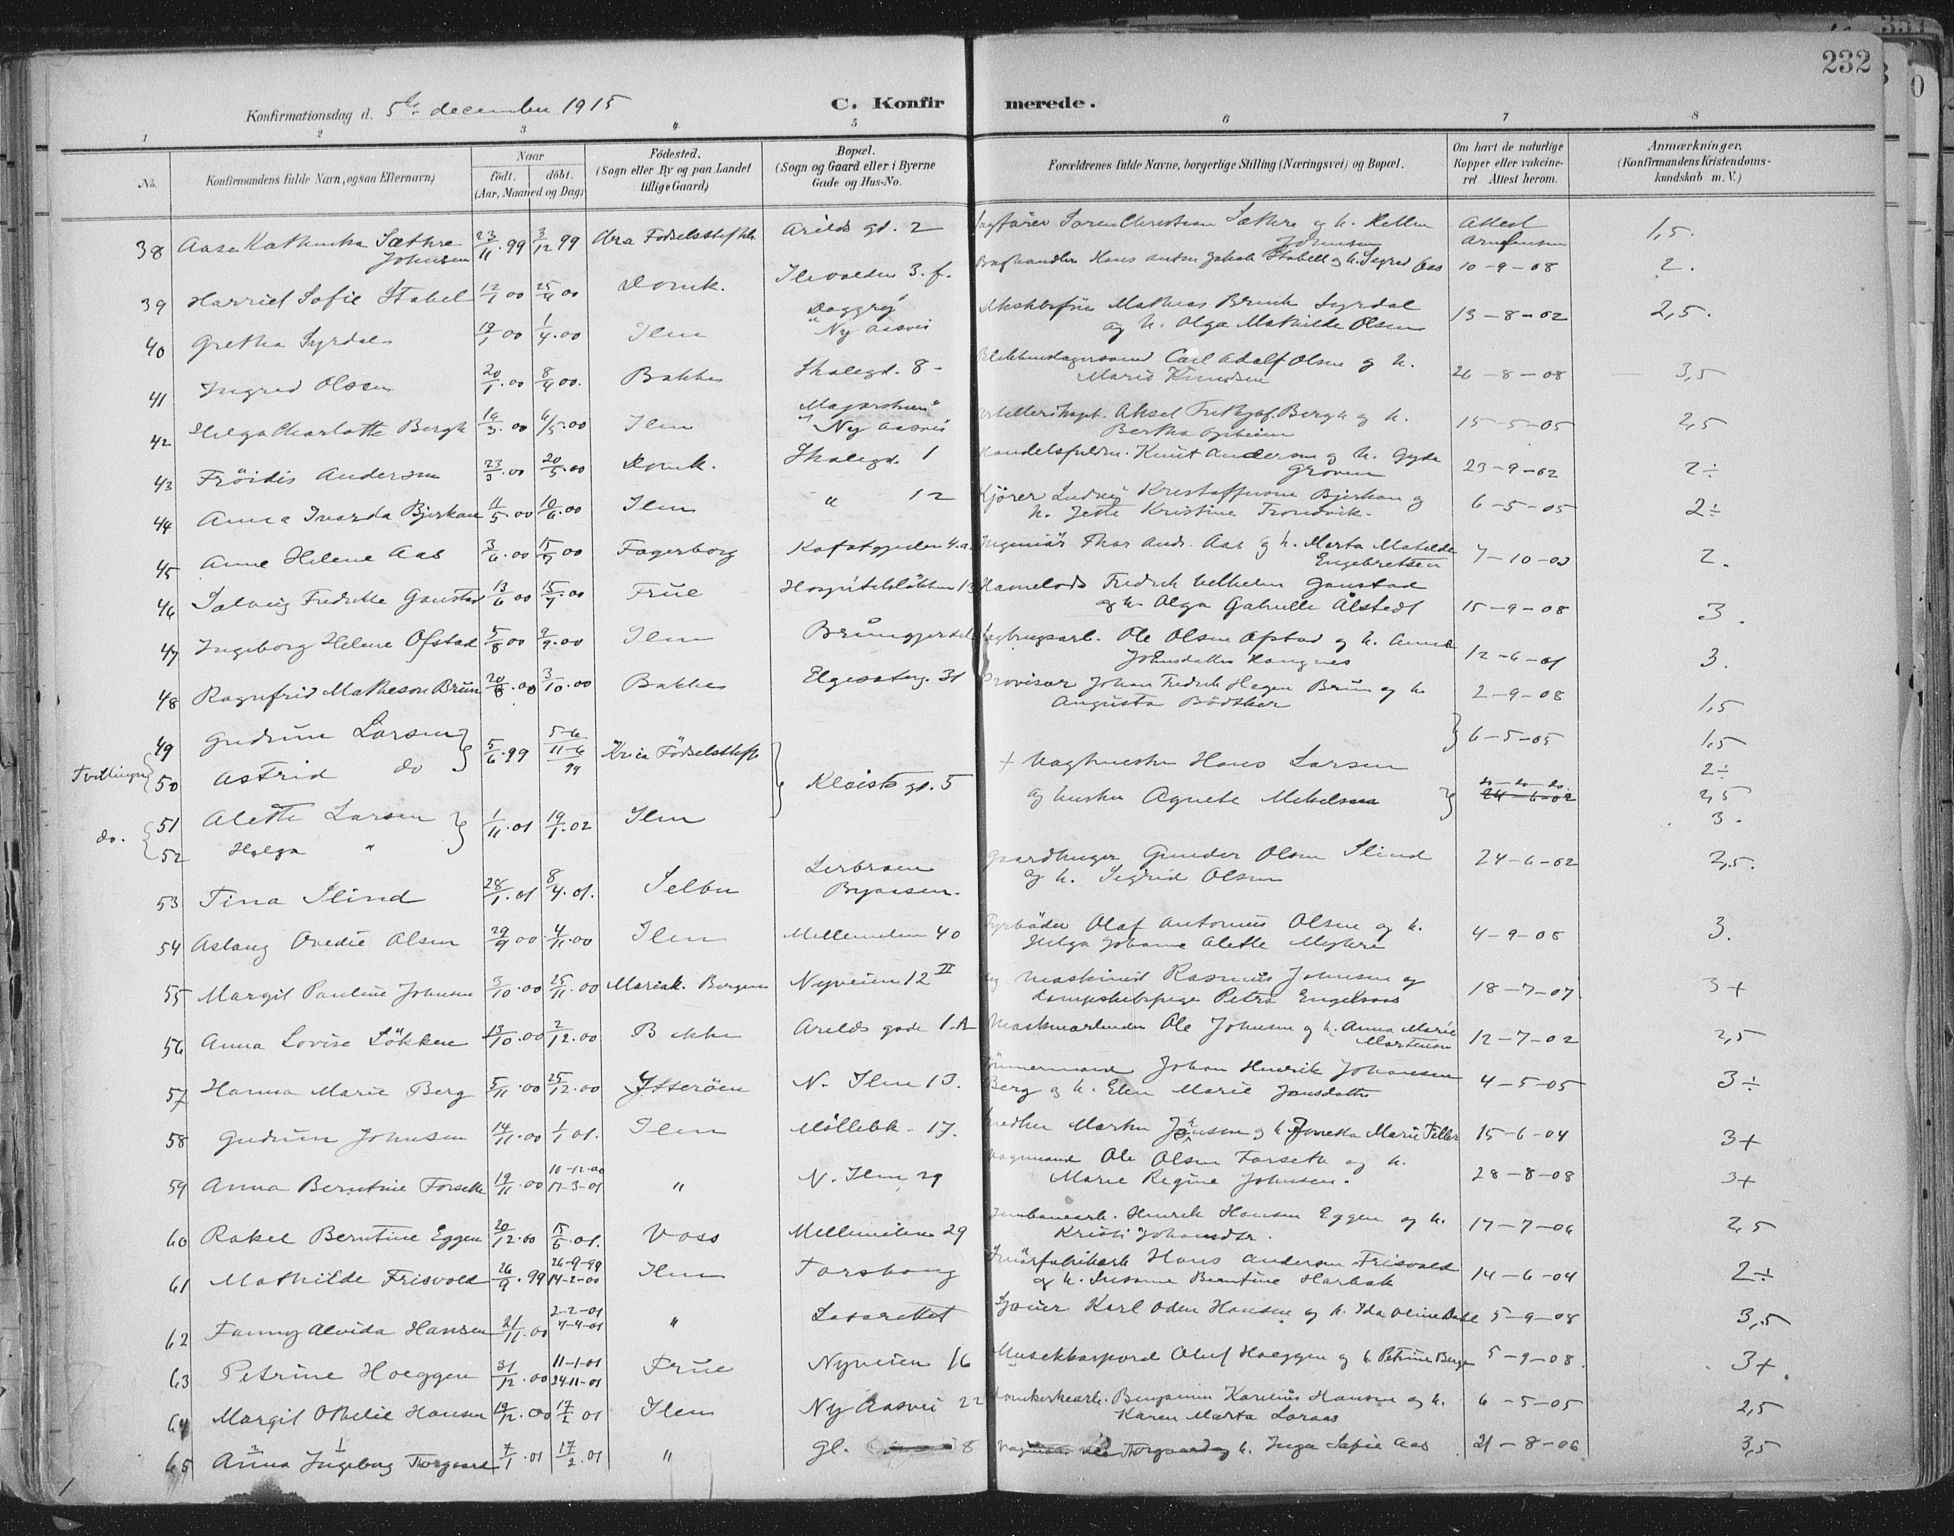 232
Konfirmationsdag d. 5te december 1915
C. Konfirmerede.
1 2 3 4 5 6 7 8
No. Konfirmandens fulde Navn, ogsaa Efternavn) Naar født. døbt. (Aar, Maaned og Dag) Fødested. (Sogn eller By og paa Landet tillige Gaard) Bopæl. (Sogn og Gaard eller i Byerne Gade og Hus-No. Forældrenes fulde Navne, borgerlige Stilling (Næringsvei) og Bopæl. Om havt de naturlige Kopper eller vakcineret. Attest herom. Anmærkninger. (Konfirmandens Kristendomskundskab m. V.)
38 Aasa Sæthre Johnsen 23/11 99 3/12 99 Arilds gd. 2 Søren Christian Sæthre og h. Johnsen Attest 1,5.
39 Harriet Sofie Stabel 12/1 00 25/4 00 Domk. Ilevolden 3. f. Hans Anton Jakob Stabell og h. Sigrid Aas 10-9-08 2.
40 Gretha Syrdal 19/1 00 1/4 00 Ilen Daggry Ny Aasvei Mathias Brink Syrdal og h. Olga Mathilde Olsen 13-8-02 2,5.
41 Ingrid Olsen 20/1 00 8/4 00. Bakke Skolegd. 8 Carl Adolf Olsen og h. Marie Knudsen 26-8-08 3,5
42 Helga Charlotte Bergh 14/3 00 6/5 00 Ilen Ny Aasvei Aksel Frithjof Bergh og h. Bertha 15-5-05 2,5
43 Frøidis Andersen 23/3 00 20/5 00 Domk. Skolegd. 1 Knut Andersen og h. Gyda Groven 23-9-02 2÷
44 Anna Bjerkan 11/5 00 10/6 00 Ilen " 12 Kjører Ludvig Kristoffersen Bjerkan og h. Jette Kristine Trondvik. 6-5-05 2÷
45 Anne Helene Aas 3/6 00 15/7 00 Fagerborg 4.a. Ingeniør Thor Andr. Aas og h. Marta Matilde Engebretsen 7-10-03 2.
46 Solveig Fredrikke Ganstad 13/6 00 15/7 00 Frue Hospitalsløkken 13 Fredrik Vilhelm Ganstad og h. Olga Gabrielle Ålstedt 15-9-08 3.
47 Ingeborg Helene Ofstad 5/8 00 9/9 00 Ilen Ole Olsen Ofstad og h. Anna Johnsdatter 12-6-01 3.
48 Ragnfrid Matheson Brun 20/8 00 3/10 00 Bakke Elgesæterg. 31 Provisor Johan Fredrik Hagen Brun og h. Augusta Bødtker 2-9-08 1,5
Tvillinger
49 Gudrun Larsen 5/6 99 5-6 11-6 99 Kria Fødselsstift 6-5-05 1,5
50 Astrid do Kleists gd. 5 + Vagtmester Hans Larsen do do do 2÷
do.
51 Alette Larsen 1/11 01 19/1 02 Ilen og hustru Agnete Mikelsen 24-6-02 2,5
52 Helga " 3.
53 Tina Slind 28/1 01 8/4 01. Selbu Byaasen. Gaardbruger Gunder Olsen Slind og h. Sigrid Olsen 24-6-02 2,5.
54 Aslaug Ovedie Olsen 29/9 00 4/11 00 Ilen Mellemilen 40 Fyrbøder Olaf Antonius Olsen og h. Helga Johanne Alette 4-9-08 3.
55 Margit Pauline Johnsen 3/10 00 25/11 00 Mariak. Bergen Nyveien 12 II Maskinist Rasmus Johnsen og Petra 18-7-07 3+
56 Anna Lovise Løkken 13/10 00 2/12 00 Bakke Arilds gade 1.A Ole Johnsen og h. Anna Marie Martensen 12-7-02 2,5
57 Hanna Marie Berg 5/11 00 25/12 00 Ytterøen N. Ilen 13. Tømmermand Johan Henrik Johansen Berg og h. Elen Marie Jonsdatter 4-5-05 3÷
58 Gudrun Johnsen 14/11 00 1/1 01. Ilen Møllebk. 17. Snedker Martin Johnsen og h. Marie Tiller 15-6-04 3+
59 Anna Berntine Forseth 19/11 00 10-12-00 17-3-01 " N. Ilen 29 Vognmand Ole Olsen Forseth og h. Marie Regine Johnsen. 28-8-08 3+
60 Rakel Berntine Eggen 20/12 00 15/5 01. Voss Mellemilen 29 Jernbanearb. Henrik Hansen Eggen og h. Kristi Johansdtr. 17-7-06 2,5
61 Mathilde Frisvold 26/9 99 26-9-99 14-2-00 Ilen Hans Andersen Frisvold og h. Susanne Berntine Harbak 14-6-04 2÷
62 Fanny Alvida Hansen 21/11 00 2-2-01 7-4-01 " Lasarettet Karl Oden Hansen og h. Ida Oline Dahl 5-9-08 3,5
63 Petrine Hoeggen 31/12 00 11-1-01 24-11-01 Frue Nyveien 16 Oluf Hoeggen og h. Petrine Berge 5-9-08. 3+.
64 Margit Otelie Hansen 19/12 00 17/2 01 Ilen Ny Aasvei 22 Benjamin Karelius Hansen og h. Karen Marta Loraas 6-5-05 2,5
65 Anna Ingeborg Thorgaard 7/1 01 17/2 01 " gl. 8 Thorgaard og h. Inga Sofie Aas 21-8-06 3,5